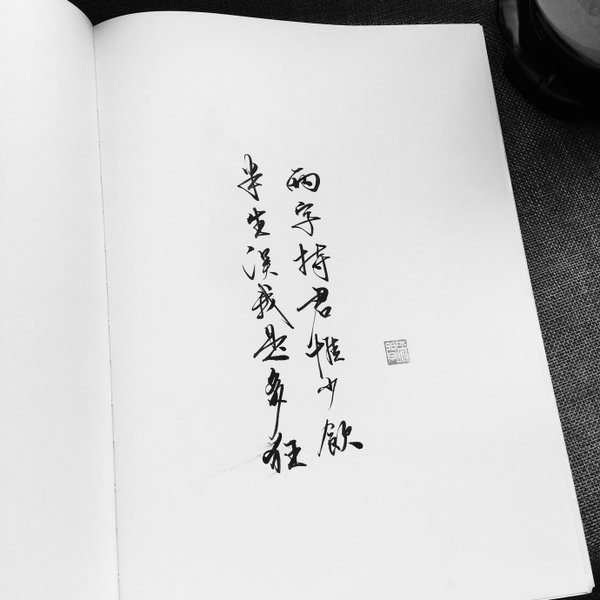 兩字持君惟少飲
半生误我是多狂